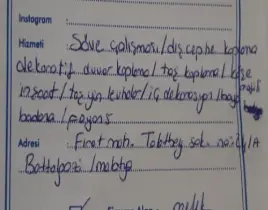 Instagram :
Hizmeti : Söve çalışması/dış cephe kaplama
dekoratif duvar kaplama/taş kaplama/köşe
inşaat/taş yün levhalar/iç dekorasyon/boya
badana/fayans
Adresi : Fırat mah. Tabthey sok. no:
Battalgazi/malatya